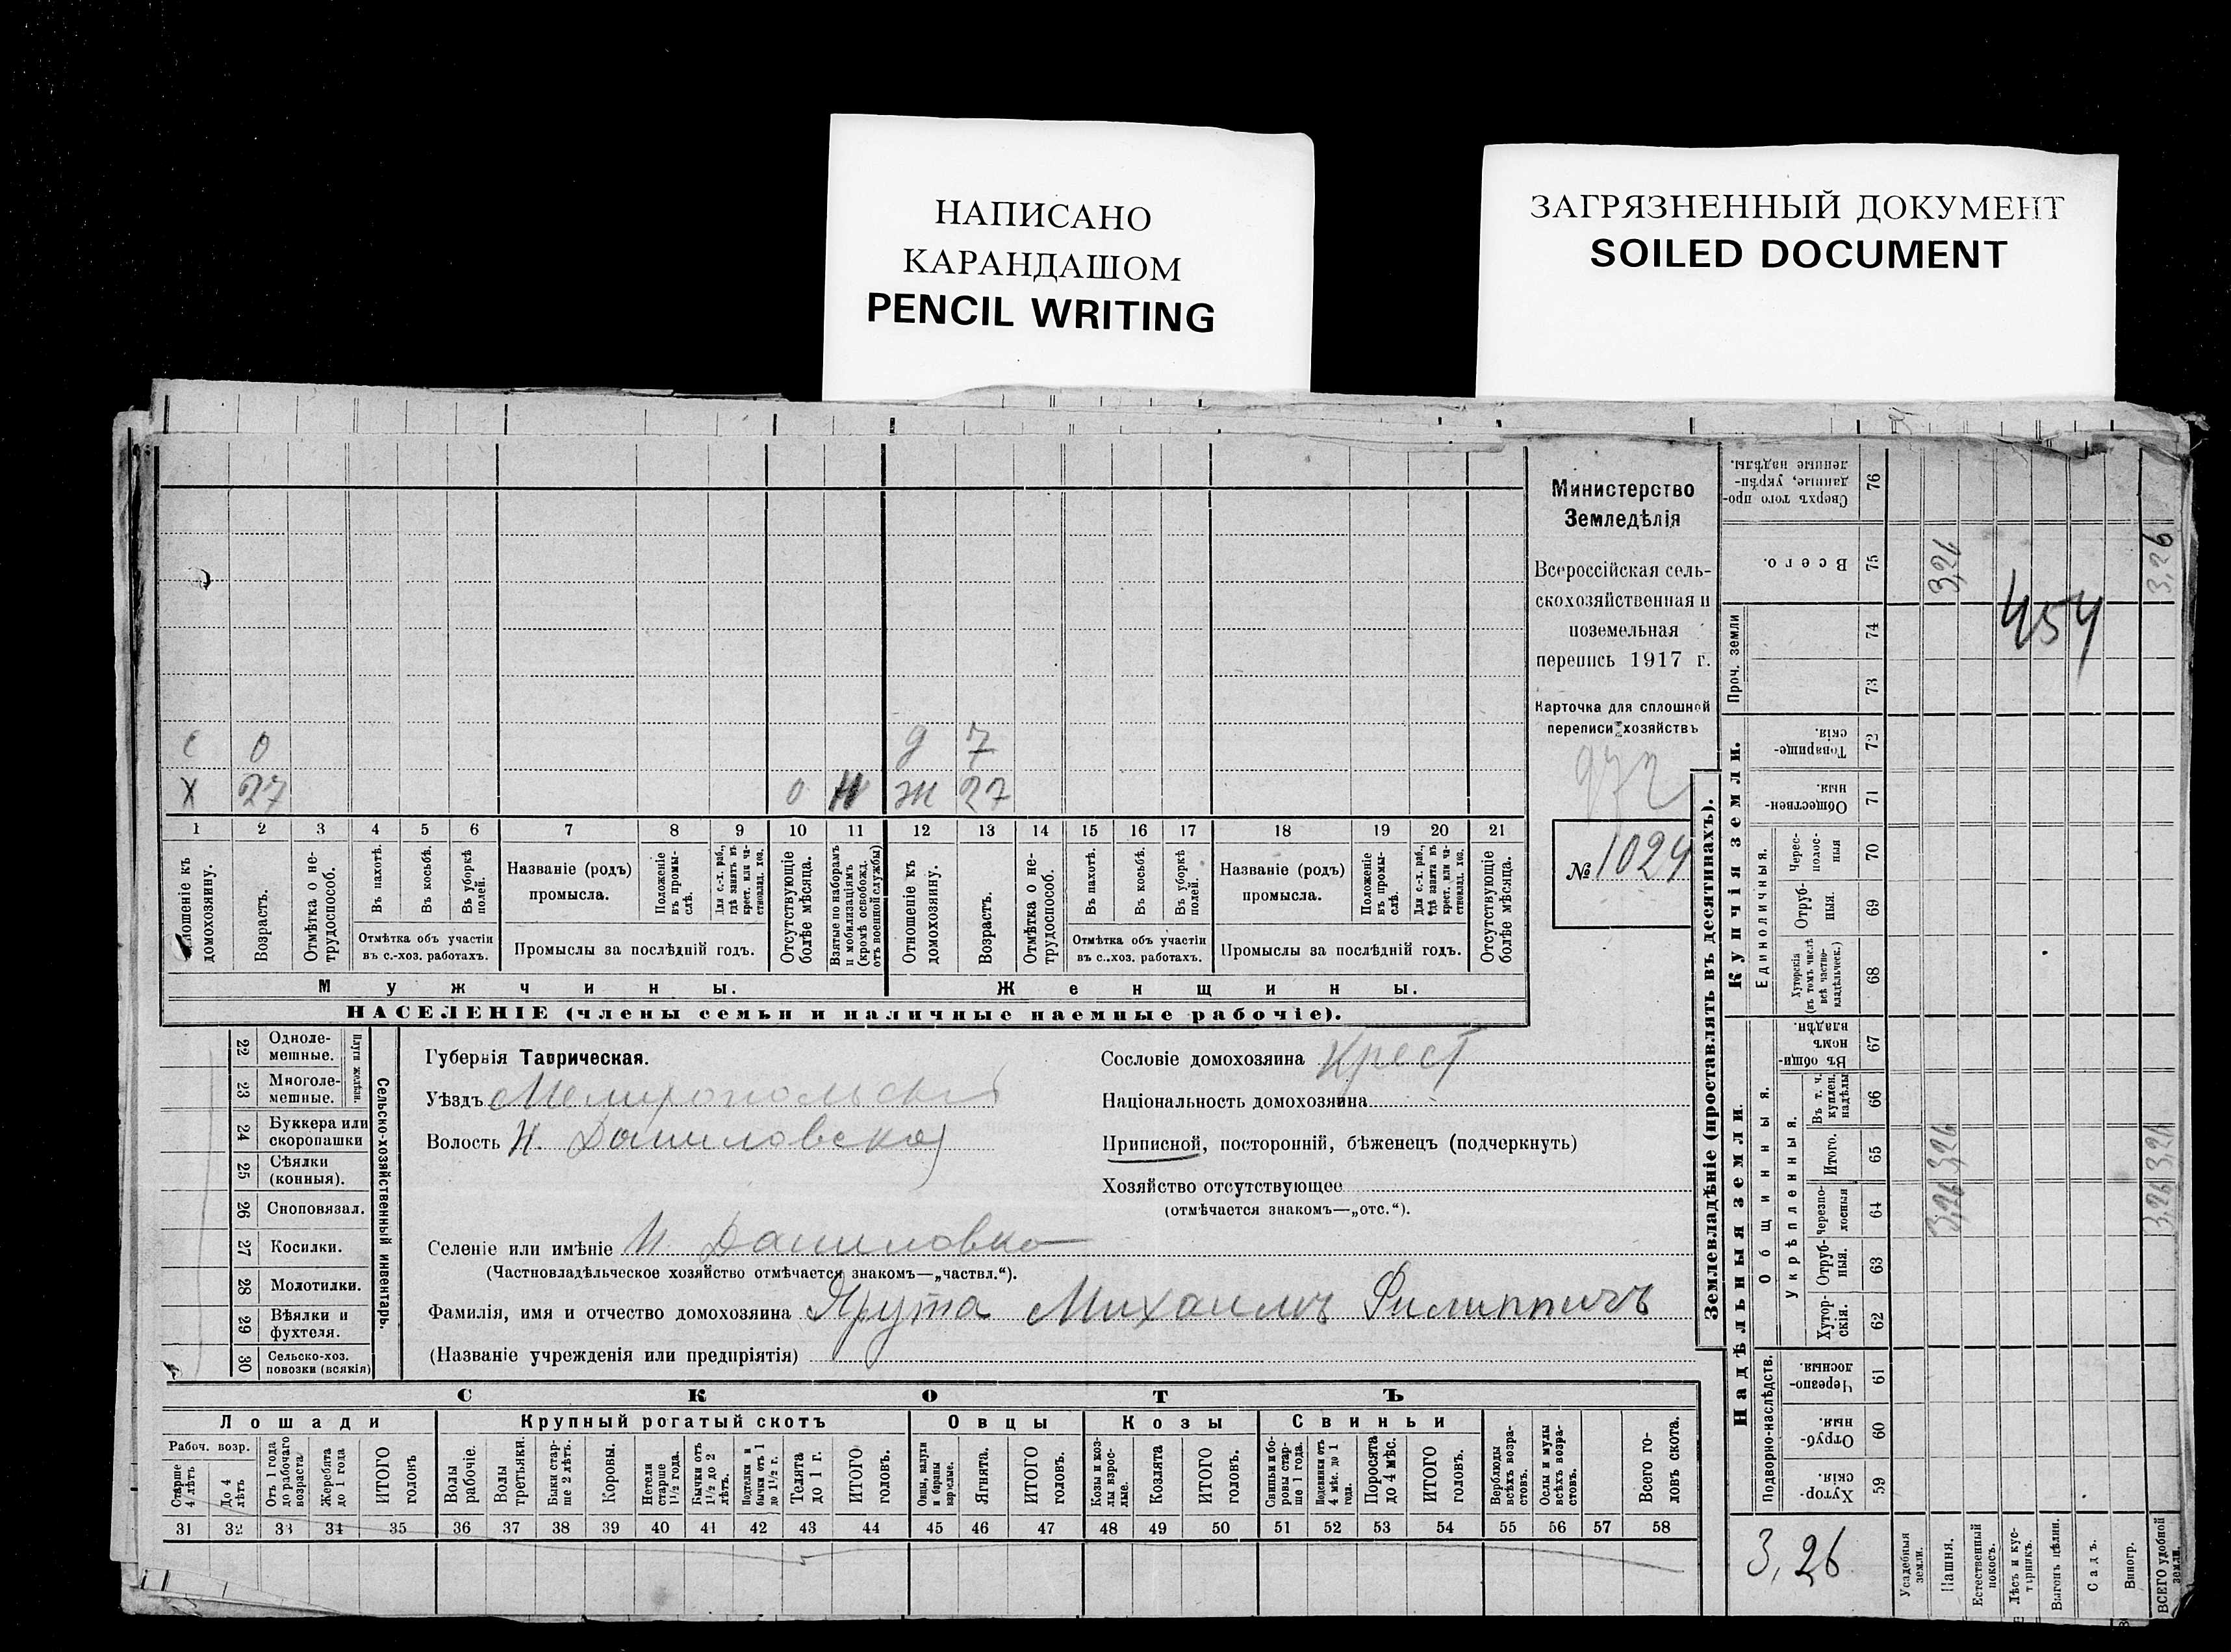 НАПИСАНО
КАРАНДАШОМ
PENCIL WRITING
ЗАГРЯЗНЕННЫЙ ДОКУМЕНТ
SOILED DOCUMENT
с 0 д 7
х 27 0 Н ж 27
1 2 3 4 5 6 7 8 9 10 11 12 13 14 15 16 17 18 19 20 21
Отношеніе къ домохозяину.
Возрастъ.
Отмѣтка о нетрудоспособ.
Въ пахотѣ.
Въ косьбѣ.
Въ уборкѣ полей.
Отмѣтка объ участіи въ с.-хоз. работахъ.
Названіе (родъ) промысла.
Положеніе въ промыслѣ.
Для с.-х. раб., гдѣ занятъ въ крест. или частновлад. хоз.
Промыслы за послѣдній годъ.
Отсутствующіе болѣе мѣсяца.
Взятые по наборамъ и мобилизаціямъ (кромѣ освобожд. отъ военной службы)
Отношеніе къ домохозяину.
Возрастъ.
Отмѣтка о нетрудоспособ.
Въ пахотѣ.
Въ косьбѣ.
Въ уборкѣ полей.
Отмѣтка объ участіи въ с.-хоз. работахъ.
Названіе (родъ) промысла.
Положеніе въ промыслѣ.
Для с.-х. раб., гдѣ занятъ въ крест. или частновлад. хоз.
Промыслы за послѣдній годъ.
Отсутствующіе болѣе мѣсяца.
Мужчины.
Женщины.
НАСЕЛЕНІЕ (члены семьи и наличные наемные рабочіе).
Министерство
Земледѣлія
Всероссійская сель-
скохозяйственная и
поземельная
перепись 1917 г.
Карточка для сплошной
переписи хозяйствъ
972
№ 1024
22 Одноле-
мешные.
23 Многоле-
мешные.
Плуги желѣзн.
24 Буккера или
скоропашки
25 Сѣялки
(конныя).
26 Сноповязал.
27 Косилки.
28 Молотилки.
29 Вѣялки и
фухтеля.
30 Сельско-хоз.
повозки (всякія)
Сельско-хозяйственный инвентарь.
Губернія Таврическая.
Уѣздъ Мелитопольскій
Волость Н. Даниловская
Селеніе или имѣніе Н. Даниловка
(Частновладѣльческое хозяйство отмѣчается знакомъ—„частвл.“).
Фамилія, имя и отчество домохозяина Ярута Михаилъ Филиппичъ
(Названіе учрежденія или предпріятія)
Сословіе домохозяина Крест
Національность домохозяина
Приписной, посторонній, бѣженецъ (подчеркнуть)
Хозяйство отсутствующее
(отмѣчается знакомъ—„отс.“).
СКОТЪ
Лошади
Крупный рогатый скотъ
Овцы
Козы
Свиньи
Рабоч. возр.
Старше 4 лѣтъ
До 4 лѣтъ
Отъ 1 года до рабочаго возраста
Жеребята до 1 года
ИТОГО головъ
Волы рабочіе.
Волы третьяки.
Быки старше 2 лѣтъ.
Коровы.
Нетели старше 1½ года.
Бычки отъ 1½ до 2 лѣтъ.
Подтелки и бычки отъ 1 до 1½ г.
Телята до 1 г.
ИТОГО головъ.
Овцы, валухи и бараны взрослые.
Ягнята.
ИТОГО головъ.
Козы и козлы взрослые.
Козлята
ИТОГО головъ.
Свиньи и боровы старше 1 года.
Подсвинки отъ 4 мѣс. до 1 года.
Поросята до 4 мѣс.
ИТОГО головъ.
Верблюды всѣхъ возрастовъ.
Ослы и мулы всѣхъ возрастовъ.
Всего головъ скота.
31 32 33 34 35 36 37 38 39 40 41 42 43 44 45 46 47 48 49 50 51 52 53 54 55 56 57 58
Землевладѣніе (проставлять въ десятинахъ).
Купчія земли.
Надѣльныя земли.
Проч. земли
Единоличныя.
Общинныя.
Укрѣпленныя.
Подворно-наслѣдств.
Сверхъ того проданные, укрѣпленные надѣлы. 76
Всего. 75
74
73
Товарищескія. 72
Общественныя. 71
Чересполосныя 70
Отрубныя. 69
Хуторскія (въ томъ числѣ всѣ частновладѣльческ.) 68
Въ общинномъ владѣн. 67
Въ т. ч. куплен. надѣлы 66
Итого. 65
Черезполосныя 64
Отрубныя. 63
Хуторскія. 62
Черезполосныя. 61
Отрубныя. 60
Хуторскія. 59
3,26
3,26
454
3,26
3,26
3,26
3,26
3,26
3,26
Усадебныя земли.
Пашня.
Естественный покосъ.
Лѣсъ и кустарникъ.
Выгонъ цѣлин.
Садъ.
Виногр.
ВСЕГО удобной земли.